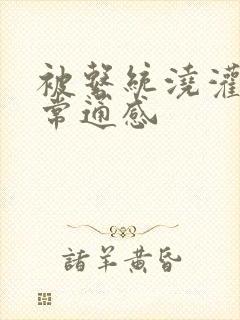 被系统浇灌
常通感
諸羊黄昏